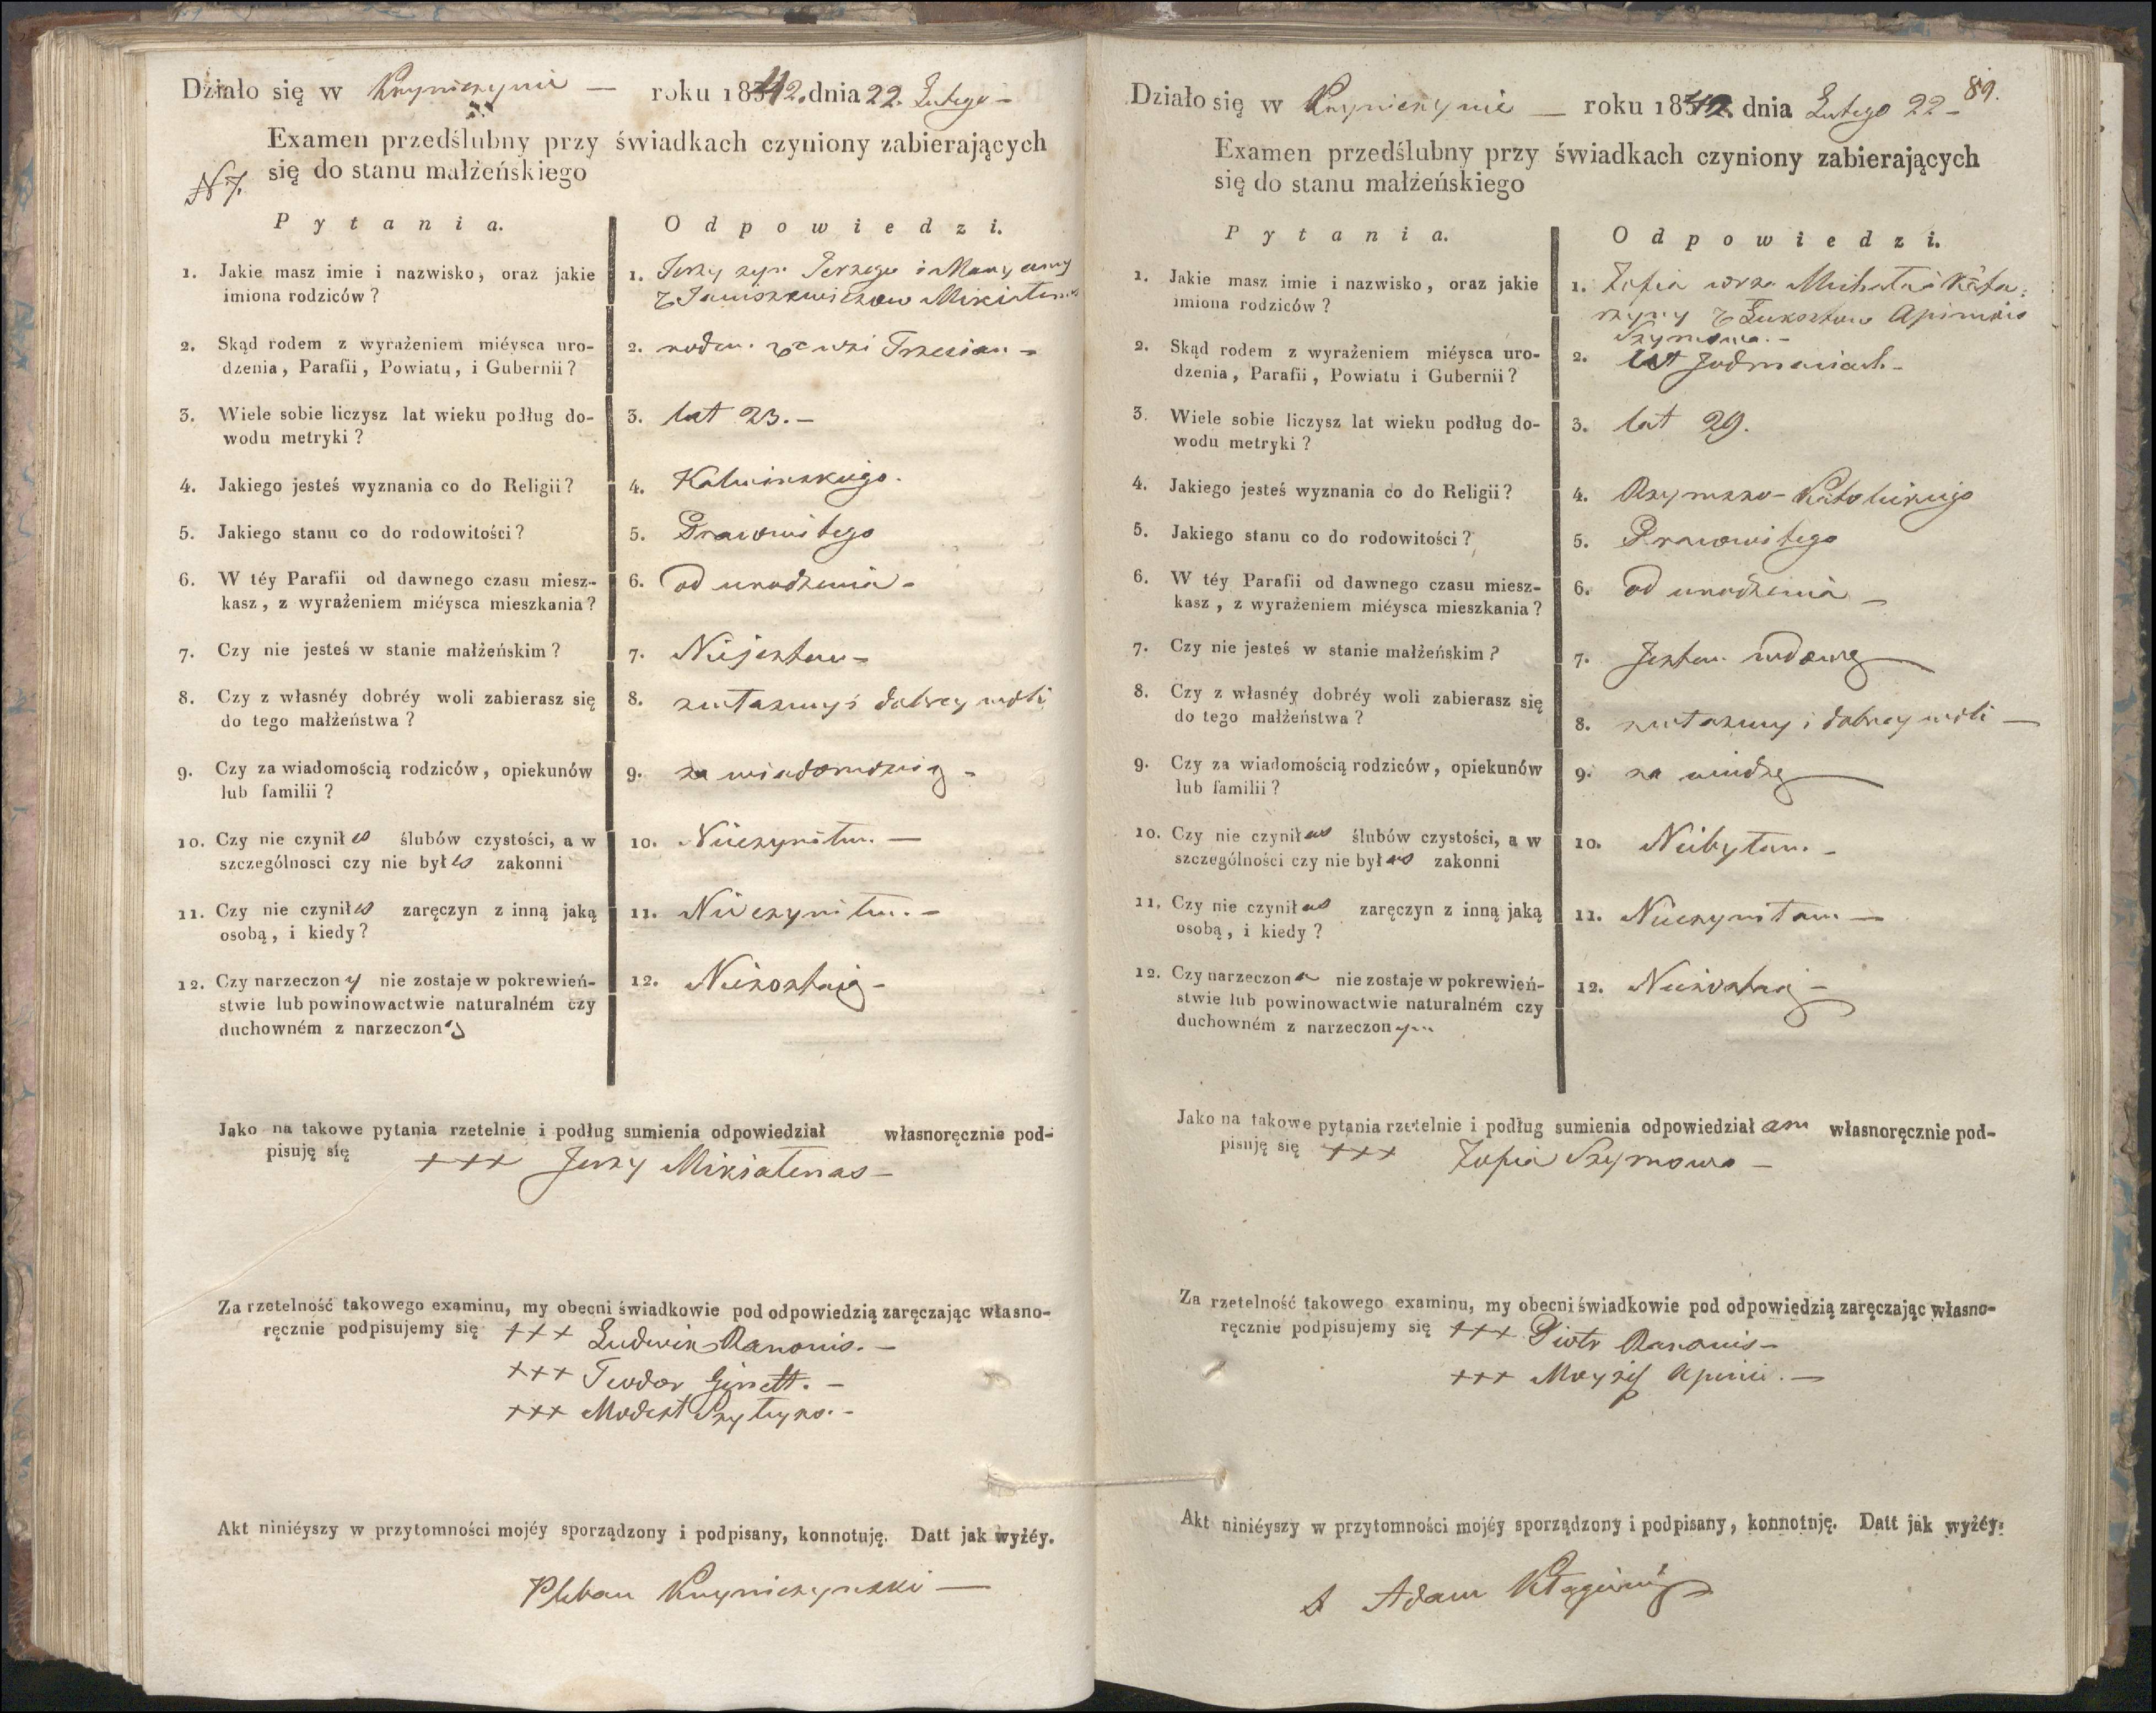 Działo się w Kryniczynie — roku 1842. dnia 22. Lutego -
Examen przedślubny przy świadkach czyniony zabierających
się do stanu małżeńskiego
N 7.
Pytania.
Odpowiedzi.
1. Jakie masz imie i nazwisko, oraz jakie
imiona rodziców?
1. Jerzy syn Jerzego i Maryanny
z Janiszkewiczow
2. Skąd rodem z wyrażeniem miéysca uro-
dzenia, Parafii, Powiatu, i Gubernii?
2. rodem ze wsi
3. Wiele sobie liczysz lat wieku podług do-
wodu metryki?
3. lat 23. -
4. Jakiego jesteś wyznania co do Religii?
4. Kalwinskiego.
5. Jakiego stanu co do rodowitości?
5. Prawowitego
6. W téy Parafii od dawnego czasu miesz-
kasz, z wyrażeniem miéysca mieszkania?
6. od urodzenia -
7. Czy nie jesteś w stanie małżeńskim?
7. Niejestem -
8. Czy z własnéy dobréy woli zabierasz się
do tego małżeństwa?
8. zwłasnny i dobrey woli
9. Czy za wiadomością rodziców, opiekunów
lub familii?
9. za wiadomością -
10. Czy nie czynił es ślubów czystości, a w
szczególnosci czy nie był es zakonni
10. Nieczyniłem. —
11. Czy nie czynił es zaręczyn z inną jaką
osobą, i kiedy?
11. Nieczyniłem. -
12. Czy narzeczon y nie zostaje w pokrewień-
stwie lub powinowactwie naturalném czy
duchowném z narzeczoną
12. Niezostaię -
Jako na takowe pytania rzetelnie i podług sumienia odpowiedział własnoręcznie pod-
pisuję się +++ Jerzy Mikiatenas -
Za rzetelność takowego examinu, my obecni świadkowie pod odpowiedzią zaręczając własno-
ręcznie podpisujemy się +++ Ludwik Ranonis. -
+++ Teodor -
+++ Modest
Akt niniéyszy w przytomności mojéy sporządzony i podpisany, konnotuję. Datt jak wyżéy.
Pleban Kryniczynski —
89.
Działo się w Kryniczynie — roku 1842 dnia Lutego 22 -
Examen przedślubny przy świadkach czyniony zabierających
się do stanu małżeńskiego
Pytania.
Odpowiedzi.
1. Jakie masz imie i nazwisko, oraz jakie
imiona rodziców?
1. Zofia Michała i Kata:
rzyny z
Szymowa. -
2. Skąd rodem z wyrażeniem miéysca uro-
dzenia, Parafii, Powiatu i Gubernii?
2.
3. Wiele sobie liczysz lat wieku podług do-
wodu metryki?
3. lat 29.
4. Jakiego jesteś wyznania co do Religii?
4. Rzymsko-Katolickiego
5. Jakiego stanu co do rodowitości?
5. Prawowitego
6. W téy Parafii od dawnego czasu miesz-
kasz, z wyrażeniem miéysca mieszkania?
6. Od urodzenia —
7. Czy nie jesteś w stanie małżeńskim?
7. Jestem wdową —
8. Czy z własnéy dobréy woli zabierasz się
do tego małżeństwa?
8. zwłasnny i dobrey woli —
9. Czy za wiadomością rodziców, opiekunów
lub familii?
9. za wiedzą —
10. Czy nie czynił as ślubów czystości, a w
szczególności czy nie był as zakonni
10. Niebyłam. -
11. Czy nie czynił as zaręczyn z inną jaką
osobą, i kiedy?
11. Nieczyniłam —
12. Czy narzeczon a nie zostaje w pokrewień-
stwie lub powinowactwie naturalném czy
duchowném z narzeczon ym
12. Niezostaię -
Jako na takowe pytania rzetelnie i podług sumienia odpowiedział am własnoręcznie pod-
pisuję się +++ Zofia Szymowa -
Za rzetelność takowego examinu, my obecni świadkowie pod odpowiedzią zaręczając własno-
ręcznie podpisujemy się +++ Piotr Ranonis -
+++
Akt niniéyszy w przytomności mojéy sporządzony i podpisany, konnotuję. Datt jak wyżéy.
Adam